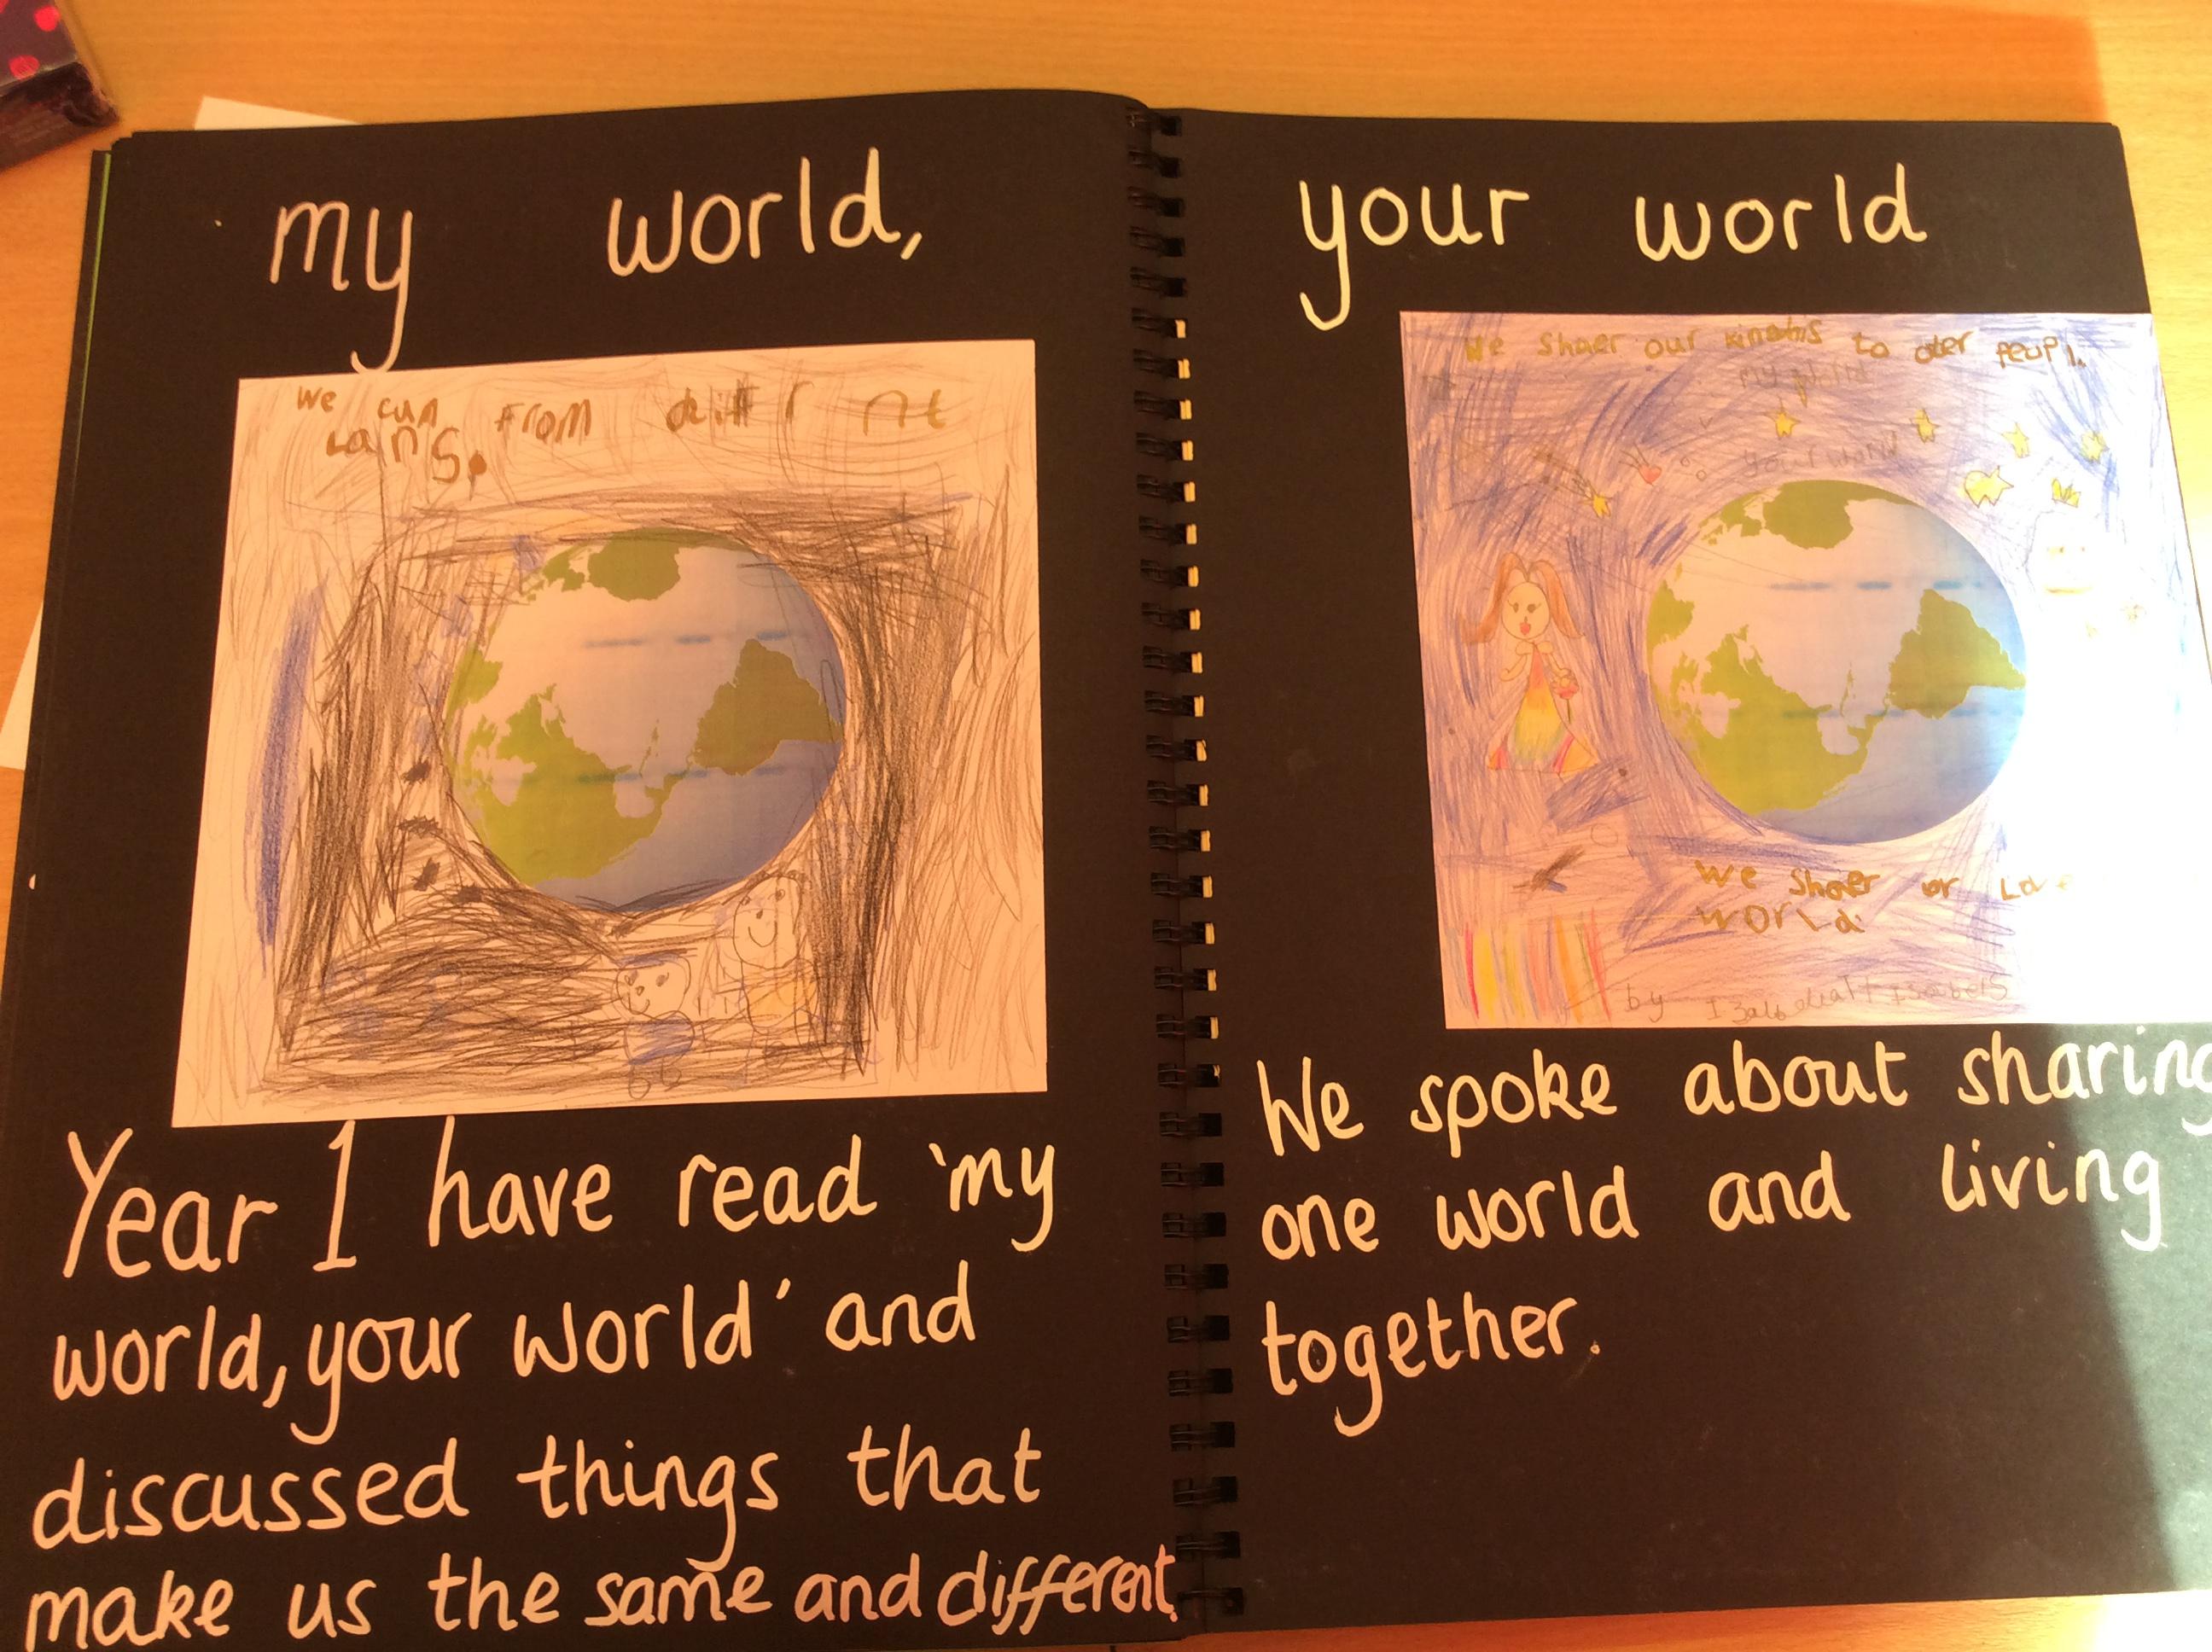 my world,
we cun from diffrnt
Lans.
Year 1 have read 'my
world, your world' and
discussed things that
make us the same and different.
your world
We Shaer our kindnis to oter peupl.
my world
your world
We Shaer or Love
world.
by
We spoke about sharing
one world and living
together.